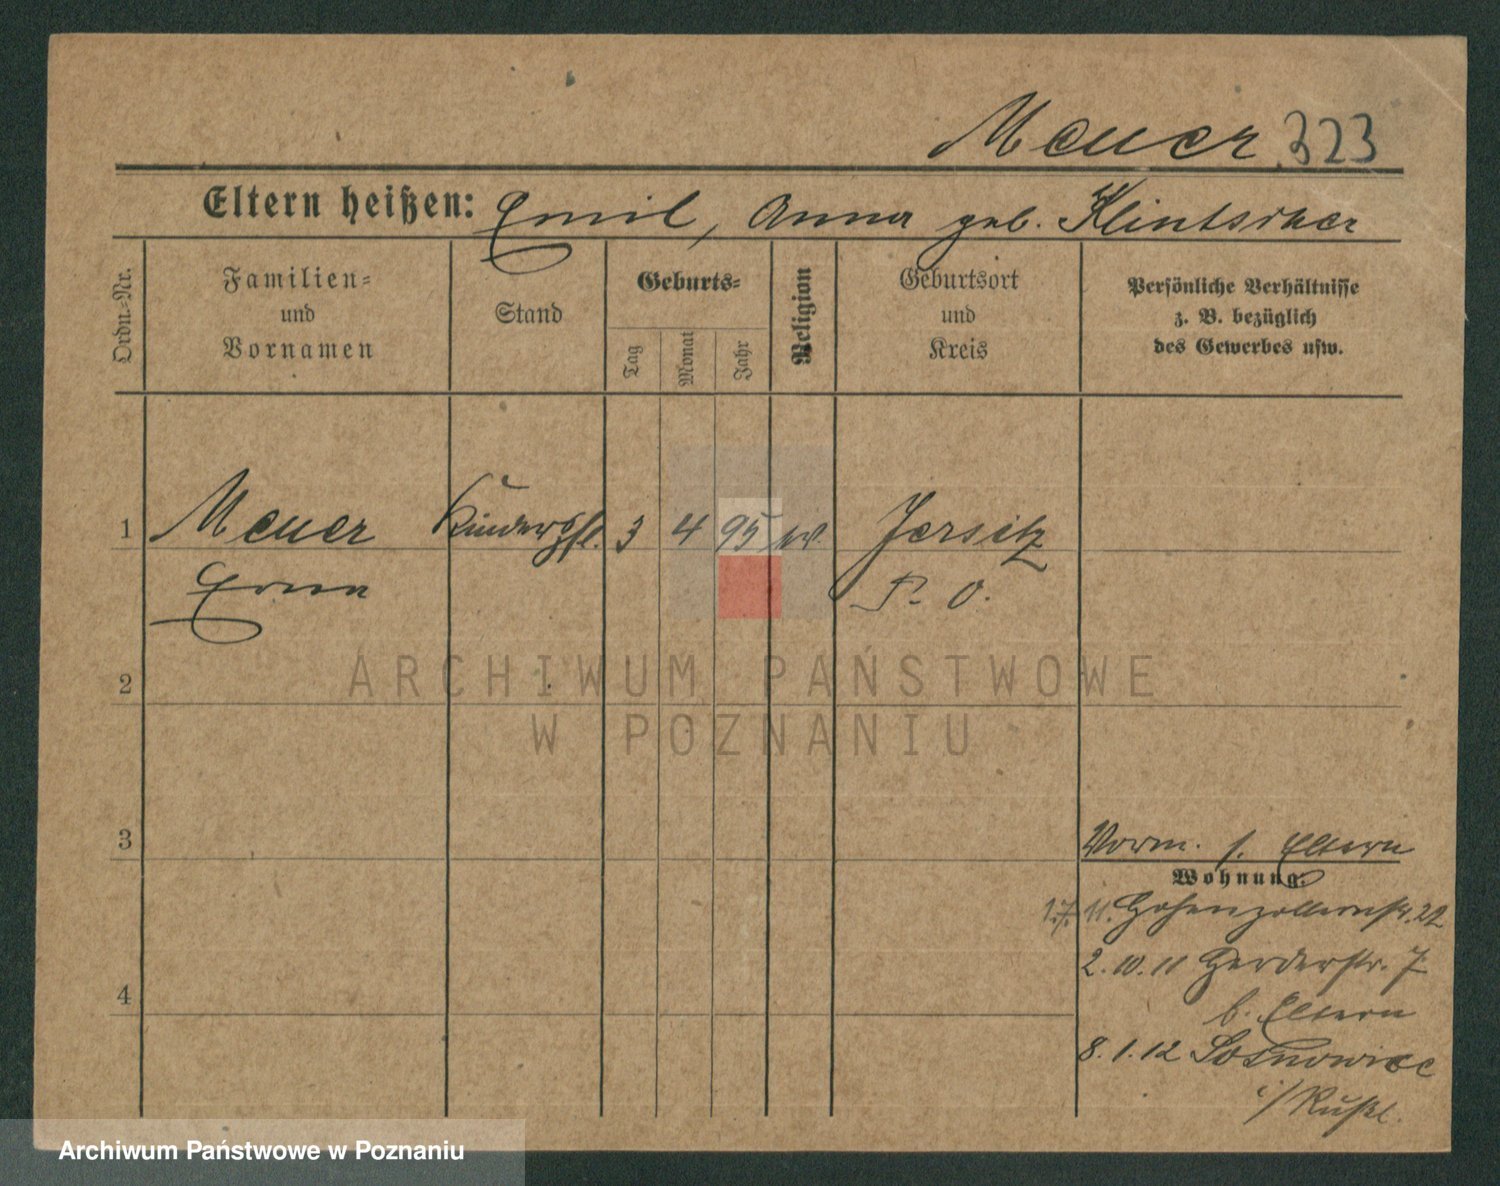 Meuer 323
Eltern heißen: Emil, Anna geb.
Ordn.-Nr.
Familien-
und
Vornamen
Stand
Geburts-
Tag
Monat
Jahr
Religion
Geburtsort
und
Kreis
Persönliche Verhältnisse
z. B. bezüglich
des Gewerbes usw.
1 Meuer 3 4 95 ev. Jersitz
Erna P. O.
2
ARCHIWUM PAŃSTWOWE
W POZNANIU
3
Vorm. s. Eltern
Wohnung:
1.7. 11. Hohenzollernstr. 22
2.10.11 Herderstr. 7
4
b. Eltern
8.1.12 Sosnowice
i/Rußl.
Archiwum Państwowe w Poznaniu